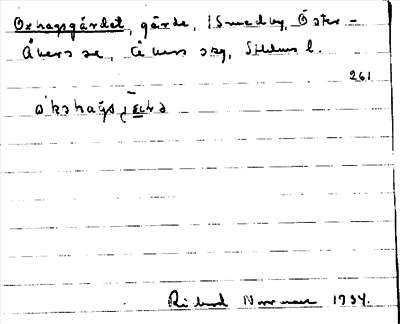 Oxhagsgärdet, gärde, i Smedby, Öster-
Åkers sn, Åkers skg, Sthlms l.
261
Rikard Norrman 1934.